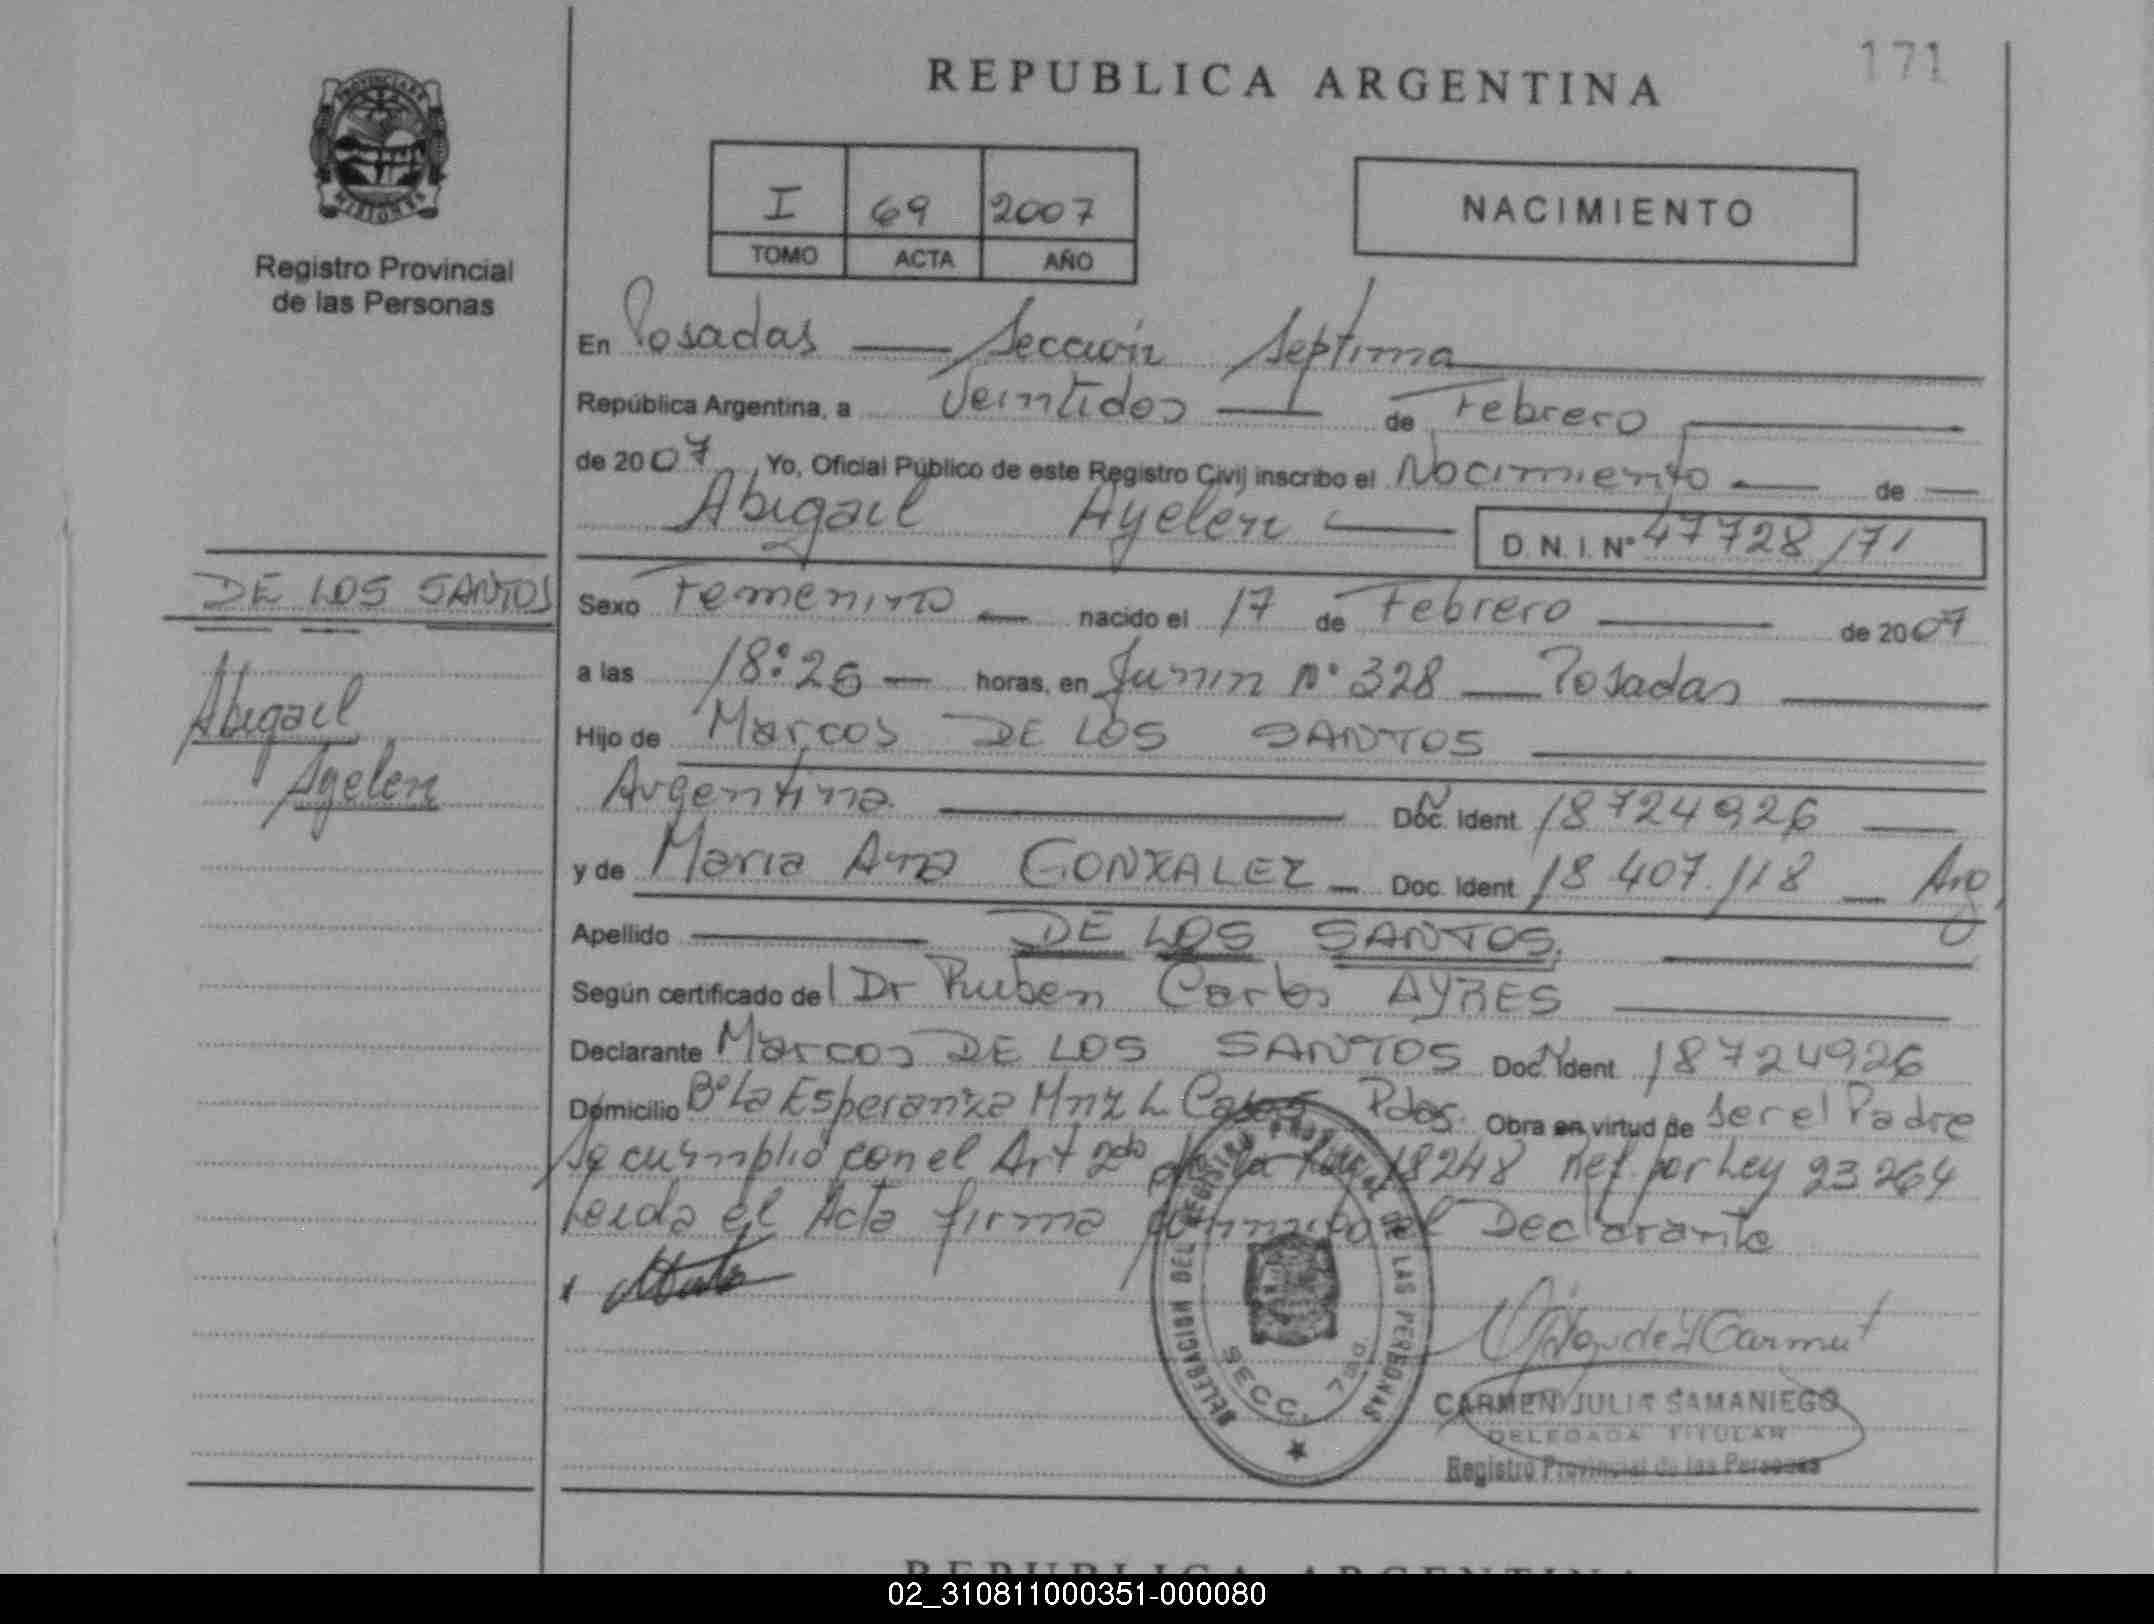 171
REPUBLICA ARGENTINA
PROVINCIA DE
MISIONES
Registro Provincial
de las Personas
I 69 2007
TOMO ACTA AÑO
NACIMIENTO
En Posadas — Sección Septima
República Argentina, a Veintidos — de Febrero
de 2007, Yo, Oficial Público de este Registro Civil inscribo el Nacimiento — de —
Abigail Ayelen — D.N.I. Nº 47728171
DE LOS SANTOS
Abigail
Ayelen
Sexo Femenino — nacido el 17 de Febrero — de 2007
a las 18:26 — horas, en Junin Nº 328 — Posadas
Hijo de Marcos DE LOS SANTOS
Argentina — Doc. Ident. 18724926 —
y de Maria Ana GONZALEZ — Doc. Ident. 18407.118 — Arg.
Apellido — DE LOS SANTOS.
Según certificado del Dr Ruben Carlos AYRES
Declarante Marcos DE LOS SANTOS Doc. Ident. 18724926
Domicilio Bº La Esperanza Mnz L Pdas. Obra en virtud de ser el Padre
Se cumplió con el Art 2do de la Ley 18248 Ref. por Ley 23264
Leida el Acta firma conmigo el Declarante
DELEGACION DEL REGISTRO PROVINCIAL DE LAS PERSONAS
SECC. 7ma.
CARMEN JULIA SAMANIEGO
DELEGADA TITULAR
Registro Provincial de las Personas
REPUBLICA ARGENTINA
02_310811000351-000080